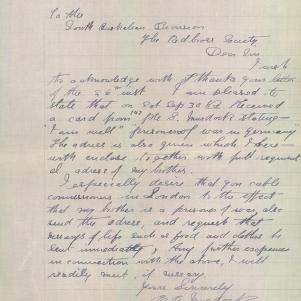 To the
South Australian Division
The Red Cross Society
Dear Sir
I wish
to acknowledge with thanks your letter
of the 26th inst I am pleased to
state that on Sat Sep 30th I Received
a card from Pte S. Murdock stating
"I am well" "prisoner of war in Germany"
The adress is also given which I here-
with enclose together with full regimental
adress of my brother.
I especially desire that you cable
commissioner in London to the effect
that my brother is a prisoner of war also
send the adress, and request that
necessarys of life such as food and clothes be
sent immediately, Any further expenses
in connection with the above, I will
readily meet, if necessary.
Yours Sincerely